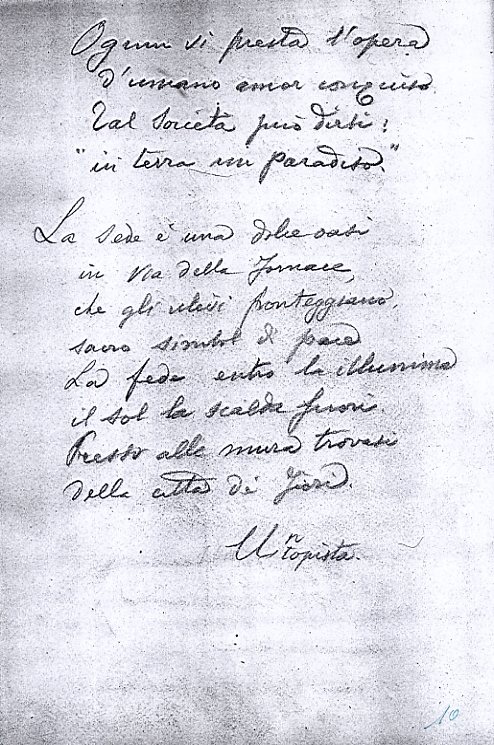 Ognun vi presta l'opera
d'umano amor conquiso
Tal Società può dirsi:
"in terra un paradiso."
La sede è una dolce oasi
in via della Fornace,
che gli ulivi fronteggiano,
sacro simbol di pace
La fede entro la illumina
il sol la scalda fuori.
Presso alle mura trovasi
della città dei fiori.
Un
topista.
10